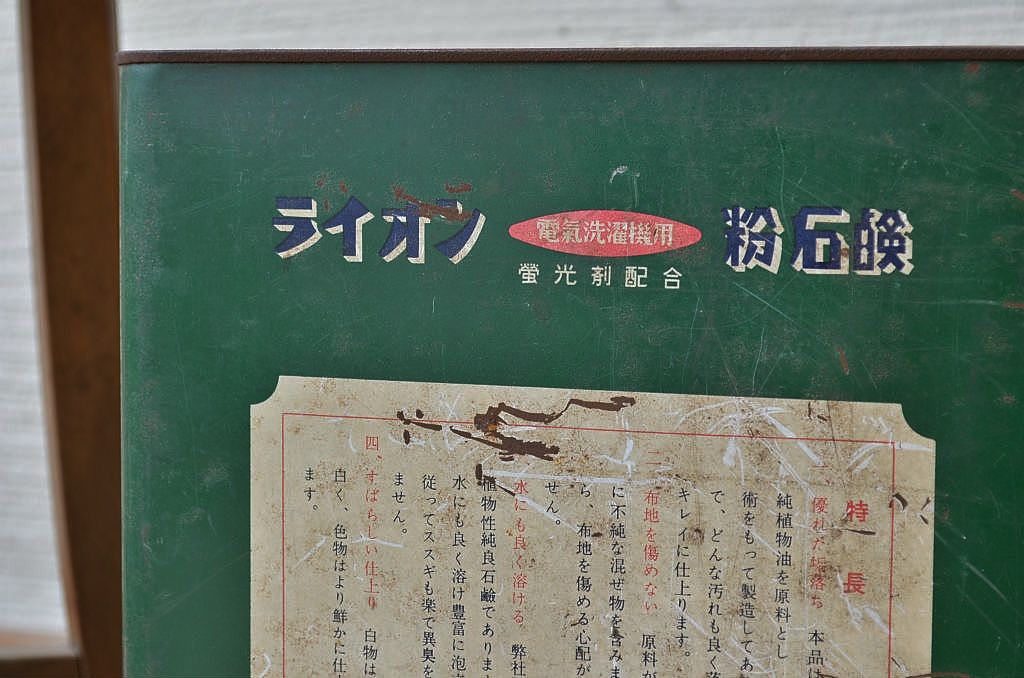 ライオン
電氣洗濯機用
粉石鹸
螢光剤配合
特長
一、優れた垢落ち 本品は
純植物油を原料とし
術をもって製造してあ
で、どんな汚れも良く落
キレイに仕上ります。
二、布地を傷めない 原料が
に不純な混ぜ物を含みま
ら、布地を傷める心配が
せん。
水にも良く溶ける。 弊社
植物性純良石鹼でありま
水にも良く溶け豊富に泡
従ってススギも楽で異臭を
ません。
四、すばらしい仕上り 白物は
白く、色物はより鮮かに仕
ます。